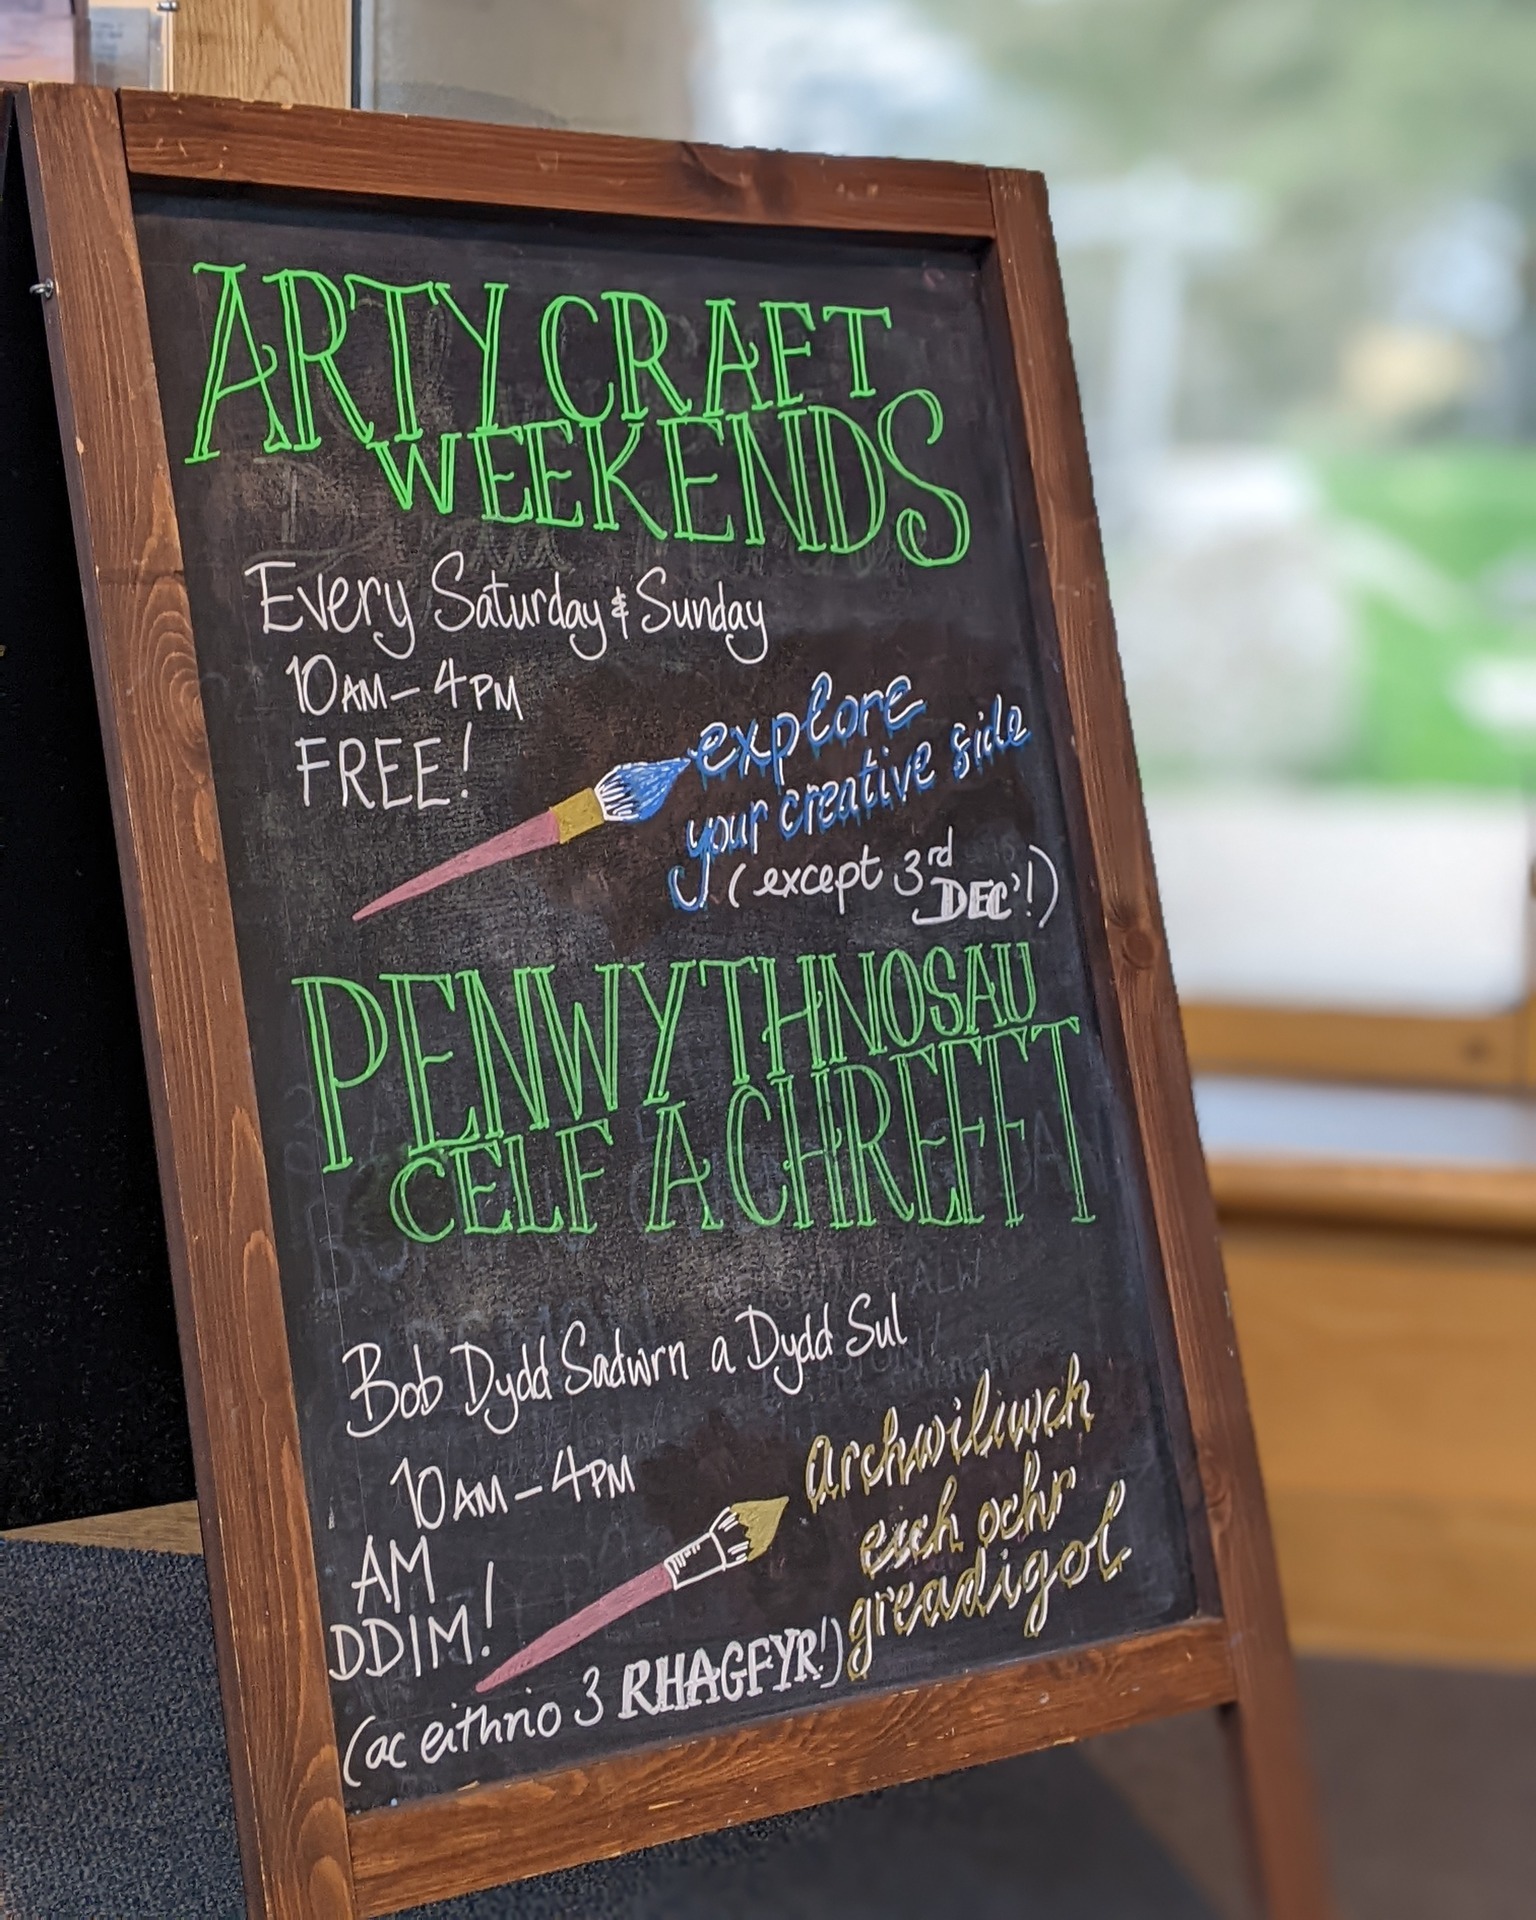 ARTY CRAFT
WEEKENDS
Every Saturday & Sunday
10AM – 4PM
FREE!
explore
your creative side
(except 3rd
DEC'!)
PENWYTHNOSAU
CELF A CHREFFT
Bob Dydd Sadwrn a Dydd Sul
10AM – 4PM
AM
DDIM!
archwiliwch
eich ochr
greadigol
(ac eithrio 3 RHAGFYR!)